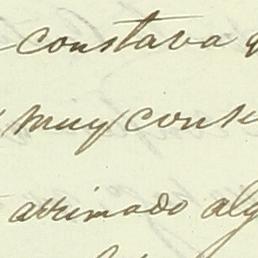 constava q
muy cons
arrimado alg